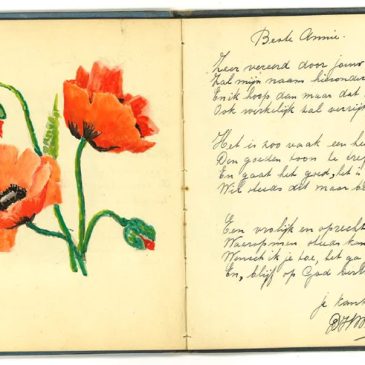 Beste Annie.
Zeer vereerd door jouw
Zal mijn naam hieronder
En ik hoop dan maar dat
Ook werkelijk zal verrij
Het is zoo vaak een he
Den goeden toon te tre
En gaat het goed, het i
Wil steeds dit maar be
Een vrolijk en oprecht
Waeropinnen steeds kan
Wensch ik je toe, het ga
En, blijf op God vert
je